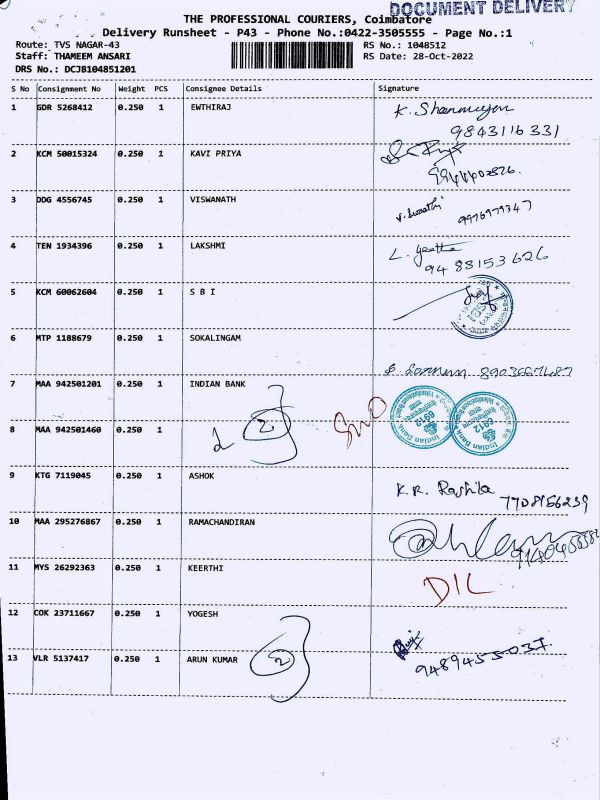 DOCUMENT DELIVERY
THE PROFESSIONAL COURIERS, Coimbatore
Delivery Runsheet - P43 - Phone No.:0422-3505555 - Page No.:1
Route: TVS NAGAR-43 RS No.: 1048512
Staff: THAMEEM ANSARI RS Date: 28-Oct-2022
DRS No.: DCJB104851201
S No Consignment No Weight PCS Consignee Details Signature
1 GDR 5268412 0.250 1 EWTHIRAJ K. Shanmugan
9843116331
2 KCM 50015324 0.250 1 KAVI PRIYA
3 DDG 4556745 0.250 1 VISWANATH 9976979347
4 TEN 1934396 0.250 1 LAKSHMI L. Geetha
94 88153626
5 KCM 60062604 0.250 1 S B I
6 MTP 1188679 0.250 1 SOKALINGAM
7 MAA 942501201 0.250 1 INDIAN BANK
2
8 MAA 942501460 0.250 1
Indian Bank
6912
Indian Bank
6912
9 KTG 7119045 0.250 1 ASHOK K.R. Rashila
7708156239
10 MAA 295276867 0.250 1 RAMACHANDIRAN
11 MYS 26292363 0.250 1 KEERTHI D/L
12 COK 23711667 0.250 1 YOGESH
2
13 VLR 5137417 0.250 1 ARUN KUMAR 9489455037